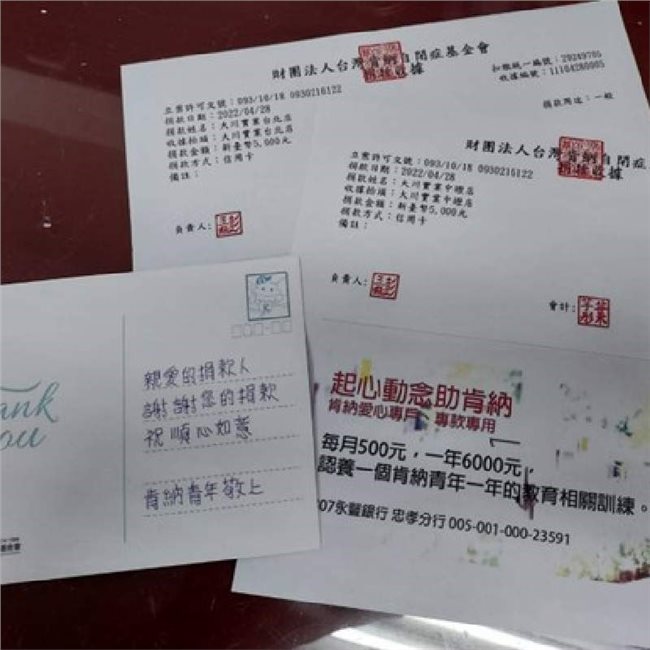 財團法人台灣肯納自閉症基金會
捐款收據
扣繳統一編號：29249705
收據編號：11104280005
捐款用途：一般
立案許可文號：093/10/18 0930216122
捐款日期：2022/04/28
捐款姓名：大川實業台北店
收據抬頭：大川實業台北店
捐款金額：新臺幣5,000元
捐款方式：信用卡
備註：
負責人：
財團法人台灣肯納自閉症
捐款收據
立案許可文號：093/10/18 0930216122
捐款日期：2022/04/28
捐款姓名：大川實業中壢店
收據抬頭：大川實業中壢店
捐款金額：新臺幣5,000元
捐款方式：信用卡
備註：
負責人：
會計：
ank
you
親愛的捐款人
謝謝您的捐款
祝 順心如意
肯納青年敬上
起心動念助肯納
肯納愛心專戶、專款專用
每月500元，一年6000元，
認養一個肯納青年一年的教育相關訓練。
07永豐銀行 忠孝分行 005-001-000-23591